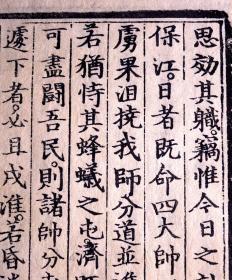 思効其職竊惟今日之
保江。日者既命四大帥
虜果沮撓我師分道並進
若猶恃其蜂蟻之屯濟
可盡鬭吾民。則諸帥分
遽下者。必且戍淮。若